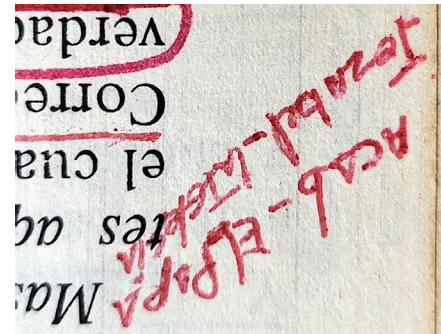 Mas
tes aq
el cua
Corre
verdad
Acab - El Papá
Jezabel - la